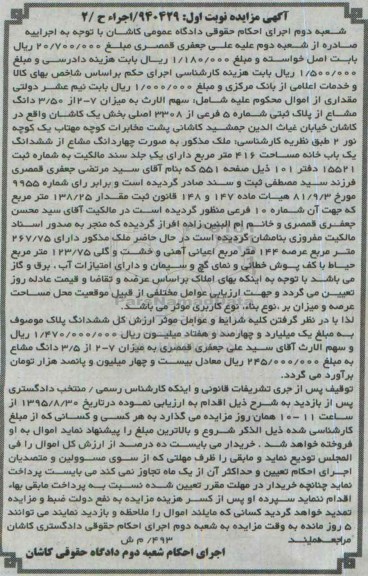 آگهی مزایده نوبت اول: ۹۴۰۴۲۹/اجراء ح /۲
شعبه دوم اجرای احکام حقوقی دادگاه عمومی کاشان با توجه به اجراییه
صادره از شعبه دوم علیه علی جعفری قمصری مبلغ ۲۰/۷۰۰/۰۰۰ ریال
بابت اصل خواسته و مبلغ ۱/۱۸۰/۰۰۰ ریال بابت هزینه دادرسی و مبلغ
۱/۵۰۰/۰۰۰ ریال بابت هزینه کارشناسی اجرای حکم براساس شاخص بهای کالا
و خدمات اعلامی از بانک مرکزی و مبلغ ۱/۰۰۰/۰۰۰ ریال بابت نیم عشر دولتی
مقداری از اموال محکوم علیه شامل: سهم الارث به میزان ۷-۲از ۳/۵۰ دانگ
مشاع از پلاک ثبتی شماره ۵ فرعی از ۳۳۰۸ اصلی بخش یک کاشان واقع در
کاشان خیابان غیاث الدین جمشید کاشانی پشت مخابرات کوچه مهتاب یک کوچه
نور ۲ طبق نظریه کارشناسی: ملک مذکور به صورت چهاردانگ مشاع از ششدانگ
یک باب خانه مساحت ۴۱۶ متر مربع دارای یک جلد سند مالکیت به شماره ثبت
۱۵۵۲۱ دفتر ۱۰۱ ذیل صفحه ۵۵۱ که بنام آقای سید مرتضی جعفری قمصری
فرزند سید مصطفی ثبت و سند صادر گردیده است و برابر رای شماره ۹۹۵۵
مورخ ۸۱/۹/۳ هیات ماده ۱۴۷ و ۱۴۸ قانون ثبت مقدار ۱۳۸/۲۵ متر مربع
که جهت آن شماره ۱۰ فرعی منظور گردیده است در مالکیت آقای سید محسن
جعفری قمصری و خانم ام البنین زاده افراز گردیده که منجر به صدور اسناد
مالکیت مفروزی بنامشان گردیده است در حال حاضر ملک مذکور دارای ۲۶۷/۷۵
متر مربع عرصه ۱۴۴ متر مربع اعیانی آهنی و خشت و گلی ۱۲۳/۷۵ متر مربع
حیاط با کف پوش خطائی و نمای گچ و سیمان و دارای امتیازات آب، برق و گاز
می باشد با توجه به اینکه بهای املاک براساس عرضه و تقاضا و قیمت عادله روز
تعیین می گردد و جهت ارزیابی عوامل مختلفی از قبیل موقعیت محل مساحت
عرصه و میزان بر، نوع بنا، نوع کاربری موثر می باشد.
لذا با در نظر گرفتن کلیه شرایط و عوامل موثر ارزش کل ششدانگ پلاک موصوف
به مبلغ یک میلیارد و چهارصد و هفتاد میلیون ریال ۱/۴۷۰/۰۰۰/۰۰۰ ریال
و سهم الارث آقای سید علی جعفری قمصری به میزان ۷-۲ از ۳/۵ دانگ مشاع
به مبلغ ۲۴۵/۰۰۰/۰۰۰ ریال معادل بیست و چهار میلیون و پانصد هزار تومان
برآورد می گردد.
توقیف پس از جری تشریفات قانونی و اینکه کارشناس رسمی / منتخب دادگستری
پس از بازدید به شرح ذیل اقدام به ارزیابی نموده درتاریخ ۱۳۹۵/۸/۳۰ از
ساعت ۱۱ -۱۰ همان روز مزایده می گذارد به هر کسی و کسانی که از مبلغ
کارشناسی شده ذیل الذکر شروع و بالاترین مبلغ را پیشنهاد نماید اموال به او
فروخته خواهد شد . خریدار می بایست ده درصد از ارزش کل اموال را فی
المجلس تودیع نماید و مابقی را ظرف مهلتی که از سوی مسوولین و متصدیان
اجرای احکام تعیین و حداکثر آن از یک ماه تجاوز نمی کند می بایست پرداخت
نماید چنانچه خریدار در مهلت مقرر تعیین شده نسبت به پرداخت مابقی بهاء
اقدام ننماید سپرده او پس از کسر هزینه مزایده به نفع دولت ضبط و مزایده
تمدید خواهد گردید کسانی که مایلند اموال را ملاحظه و بازدید نمایند می توانند
۵ روز مانده به وقت مزایده به شعبه دوم اجرای احکام حقوقی دادگستری کاشان
مراجعه نمایند. ۴۹۳/ م ش
اجرای احکام شعبه دوم دادگاه حقوقی کاشان